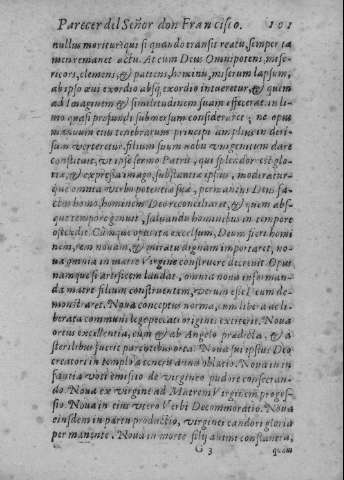 Parecer del Señor don Francisco. 101
nullus moritur: qui si quando transit reatu, semper ta
men remanet actu. At cum Deus Omnipotens, mise-
ricors, clemens, & patiens, hominũ, miserum lapsum,
ab ipso æui exordio absq; exordio intueretur, & quem
ad Imaginem & similitudinem suam effecerat, in li-
mo quasi profundi submersum consideraret; ne opus
manuum eius tenebrarum principi amplius in deri-
sum verteretur, filium suum nobis vnigenitum dare
constituit, vt ipse sermo Patris, qui splendor est glo-
riæ, & expressa imago, substantiæ ipsius, moderatur-
que omnia verbi potentiæ suæ, permanens Deus fa-
ctem homo, hominem Deo reconciliaret, & quem abs-
que tempore genuit, saluandis hominibus in tempore
ostẽdit. Cũmque opus ita excelsum, Deum fieri homi
nem, rem nouam, & miratu dignam importaret, no-
ua omnia in matre Virgine construere decreuit. Opus
namque si artificem laudat, omnia noua informan-
da matre filium construentem, verum esse Deum de-
monstraret. Noua conceptus norma, cum libera ac li-
berata communi lege peccati originis extiterit. Noua
ortus excellentia, cum & ab Angelo prædicta, & a
sterilibus fuerit parentibus orta. Noua sui ipsius Deo
creatori in templo a teneris annis oblatio. Noua in in-
fantia voti emissio de virgineo pudore conseruan-
do. Noua ex virgine ad Matrem Virginem progres-
sio. Noua in eius vtero Verbi Decommoratio. Noua
eiusdem in partu productio, virginei candoris gloria
permanente. Noua in morte filij animi constantia,
G 3 quam